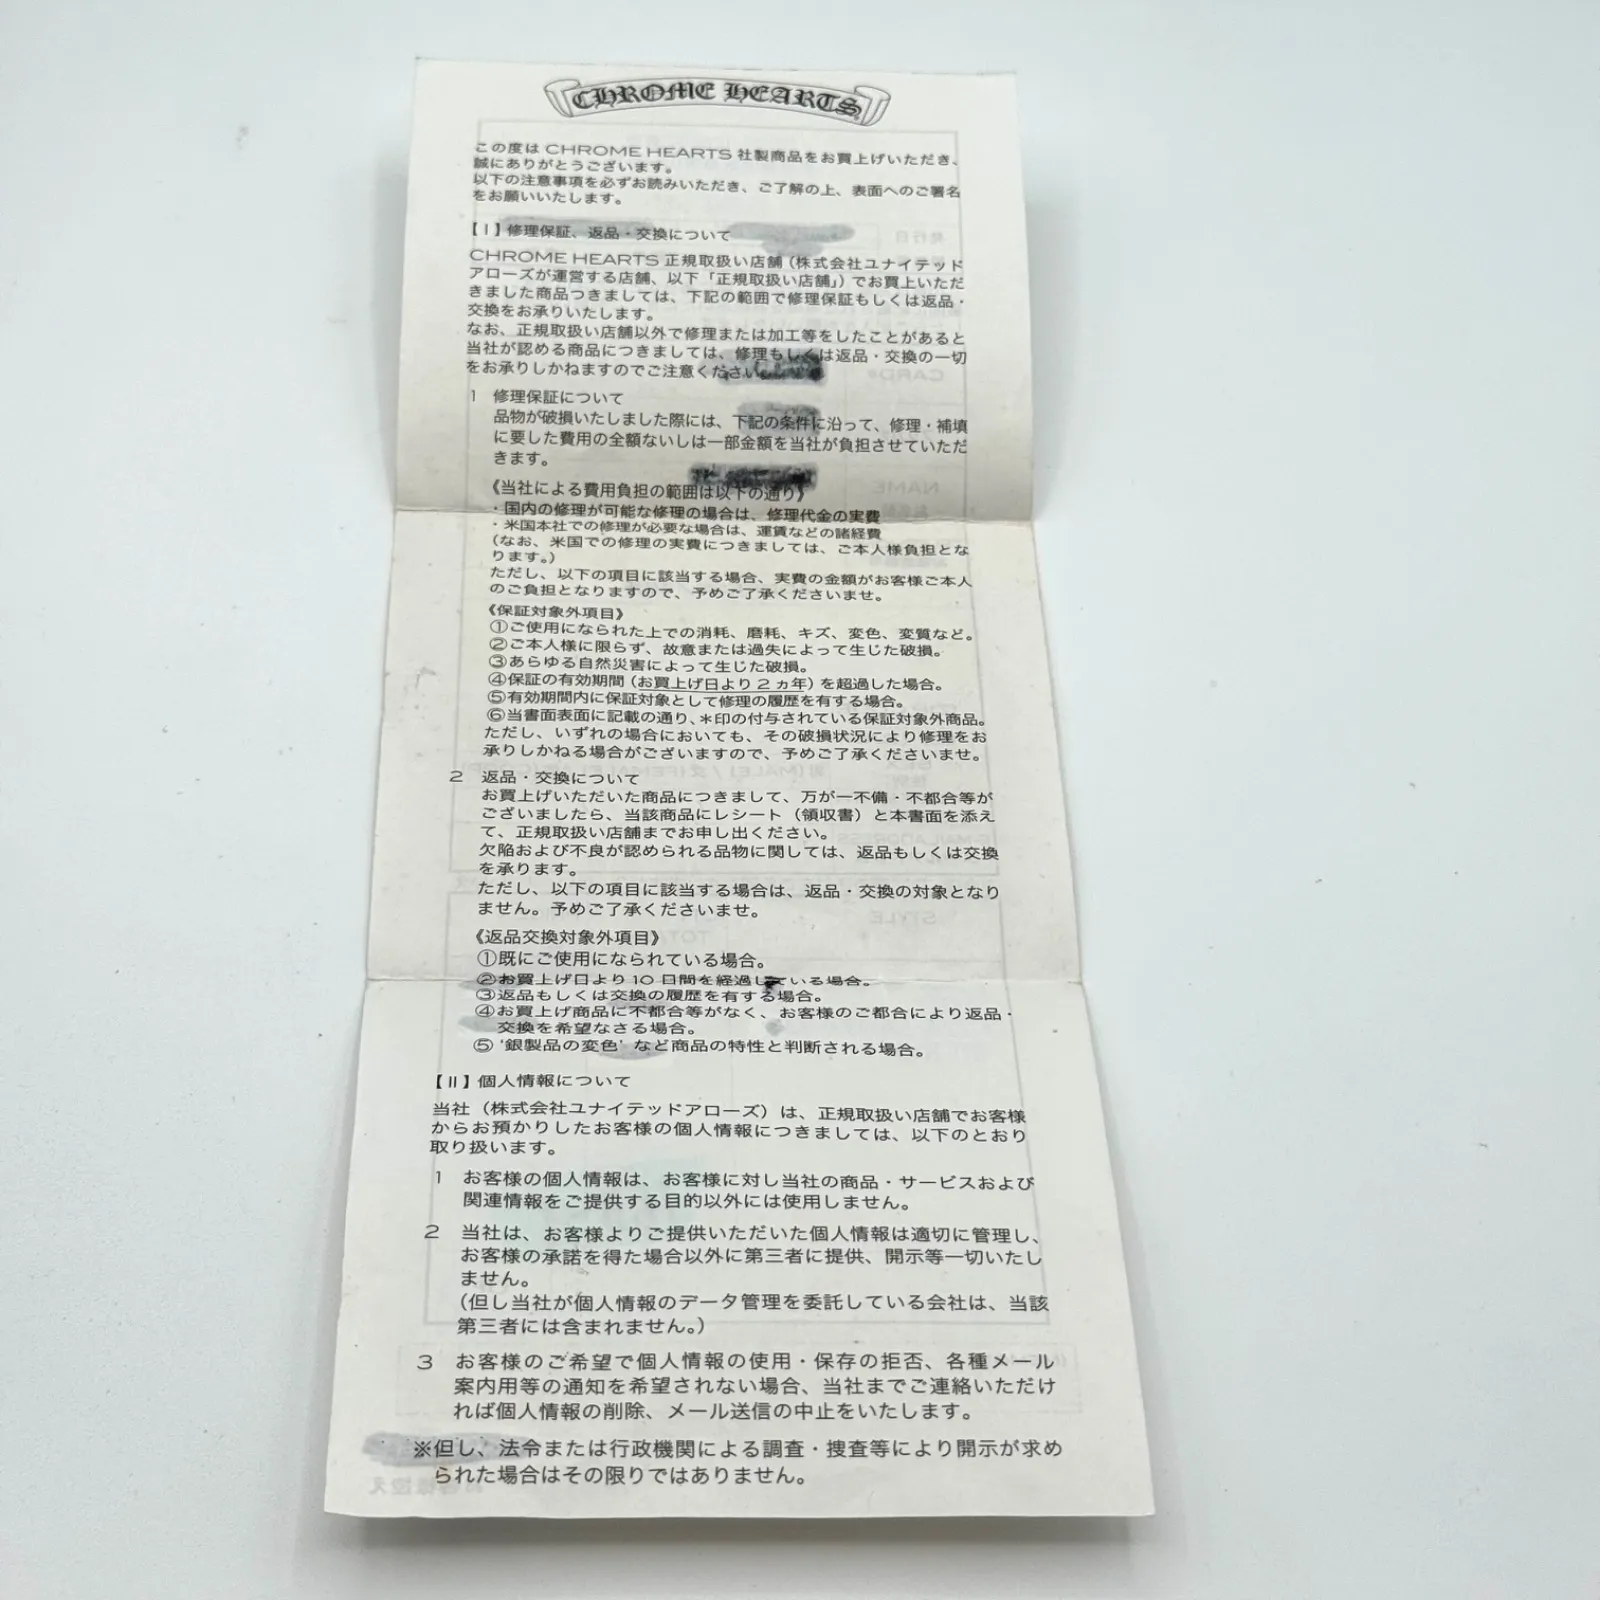 CHROME HEARTS
この度は CHROME HEARTS 社製商品をお買上げいただき、
誠にありがとうございます。
以下の注意事項を必ずお読みいただき、ご了解の上、表面へのご署名
をお願いいたします。
【I】修理保証、返品・交換について
CHROME HEARTS 正規取扱い店舗(株式会社ユナイテッド
アローズが運営する店舗、以下「正規取扱い店舗」)でお買上いただ
きました商品つきましては、下記の範囲で修理保証もしくは返品・
交換をお承りいたします。
なお、正規取扱い店舗以外で修理または加工等をしたことがあると
当社が認める商品につきましては、修理もしくは返品・交換の一切
をお承りしかねますのでご注意ください。
1 修理保証について
品物が破損いたしました際には、下記の条件に沿って、修理・補填
に要した費用の全額ないしは一部金額を当社が負担させていただ
きます。
《当社による費用負担の範囲は以下の通り》
・国内の修理が可能な修理の場合は、修理代金の実費
・米国本社での修理が必要な場合は、運賃などの諸経費
(なお、米国での修理の実費につきましては、ご本人様負担とな
ります。)
ただし、以下の項目に該当する場合、実費の金額がお客様ご本人
のご負担となりますので、予めご了承くださいませ。
《保証対象外項目》
①ご使用になられた上での消耗、磨耗、キズ、変色、変質など。
②ご本人様に限らず、故意または過失によって生じた破損。
③あらゆる自然災害によって生じた破損。
④保証の有効期間(お買上げ日より2ヵ年)を超過した場合。
⑤有効期間内に保証対象として修理の履歴を有する場合。
⑥当書面表面に記載の通り、*印の付与されている保証対象外商品。
ただし、いずれの場合においても、その破損状況により修理をお
承りしかねる場合がございますので、予めご了承くださいませ。
2 返品・交換について
お買上げいただいた商品につきまして、万が一不備・不都合等が
ございましたら、当該商品にレシート(領収書)と本書面を添え
て、正規取扱い店舗までお申し出ください。
欠陥および不良が認められる品物に関しては、返品もしくは交換
を承ります。
ただし、以下の項目に該当する場合は、返品・交換の対象となり
ません。予めご了承くださいませ。
《返品交換対象外項目》
①既にご使用になられている場合。
②お買上げ日より10日間を経過している場合。
③返品もしくは交換の履歴を有する場合。
④お買上げ商品に不都合等がなく、お客様のご都合により返品・
交換を希望なさる場合。
⑤'銀製品の変色'など商品の特性と判断される場合。
【II】個人情報について
当社(株式会社ユナイテッドアローズ)は、正規取扱い店舗でお客様
からお預かりしたお客様の個人情報につきましては、以下のとおり
取り扱います。
1 お客様の個人情報は、お客様に対し当社の商品・サービスおよび
関連情報をご提供する目的以外には使用しません。
2 当社は、お客様よりご提供いただいた個人情報は適切に管理し、
お客様の承諾を得た場合以外に第三者に提供、開示等一切いたし
ません。
(但し当社が個人情報のデータ管理を委託している会社は、当該
第三者には含まれません。)
3 お客様のご希望で個人情報の使用・保存の拒否、各種メール
案内用等の通知を希望されない場合、当社までご連絡いただけ
れば個人情報の削除、メール送信の中止をいたします。
※但し、法令または行政機関による調査・捜査等により開示が求め
られた場合はその限りではありません。